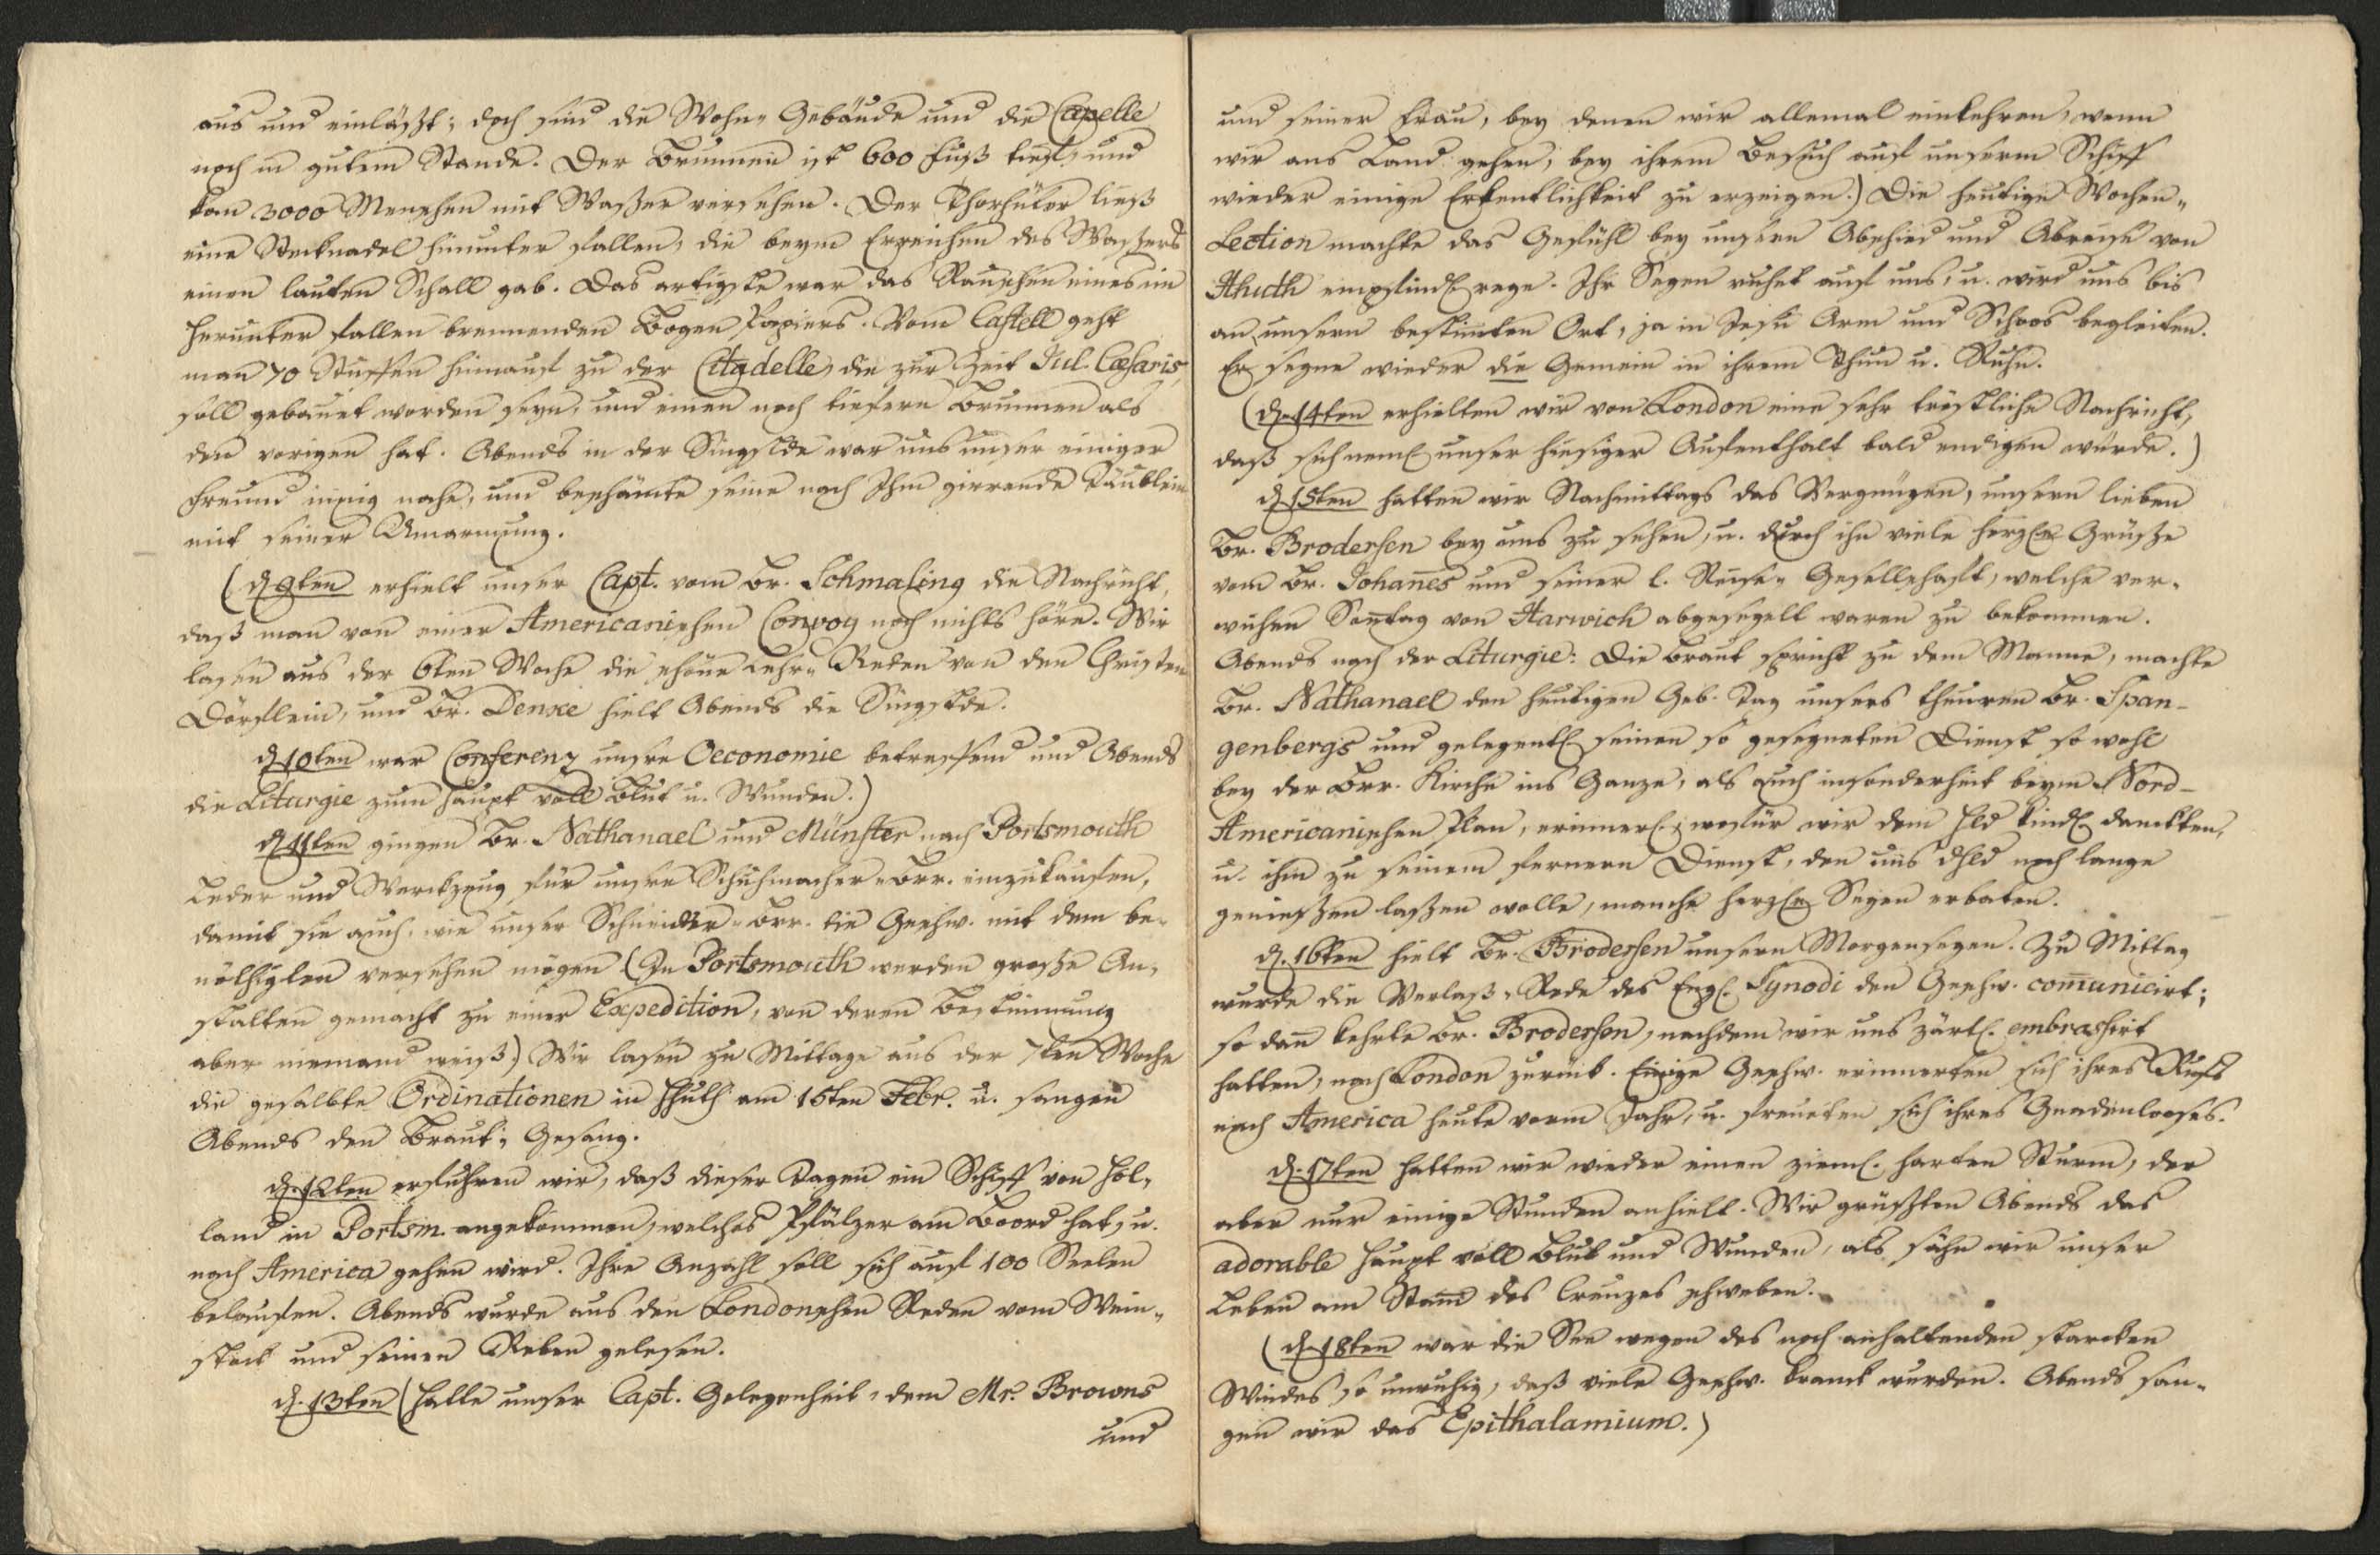 aus und einläßt; doch sind die Wohn-Gebäude und die Capelle
noch in gutem Stande. Der Brunnen ist 600 Fuß tief, und
kan 3000 Menschen mit Waßer versehen. Der Thorhüter ließ
eine Stecknadel hinunter fallen, die beym Erreichen des Waßers
einen lauten Schall gab. Das artigste war das Rauschen eines im
herunter fallen brennenden Bogen Papiers. Vom Castell geht
man 70 Stuffen hinauf zu der Citadelle, die zur Zeit Jul. Cæsaris,
soll gebauet worden seyn, und einen noch tiefern Brunnen als
den vorigen hat. Abends in der Singstde war uns unser einiger
Freund innig nahe, und beschämte seine nach Ihm girrende Täublein
mit seiner Umarmung.
(d 9ten erhielt unser Capt. vom Br. Schmaling die Nachricht,
daß man von einer Americanischen Convoy noch nichts höre. Wir
lasen aus der 6ten Woche die schöne Lehr-Reden von den Christen
Dörflein, und Br. Denke hielt Abends die Singstde.
d 10ten war Conferenz unsre Oeconomie betreffend und Abends
die Liturgie zum Haupt voll Blut u. Wunden.)
d 11ten gingen Br. Nathanael und Münster nach Portsmouth
Leder und Werckzeug für unsre Schuhmacher-Brr. einzukaufen,
damit sie auch, wie unser Schneider-Brr. die Geschw. mit dem be-
nöthigten versehen mögen (In Portsmouth werden große An-
stalten gemacht zu einer Expedition, von deren Bestimmung
aber niemand weiß.) Wir lasen zu Mittage aus der 7ten Woche
die gesalbte Ordinationen in Hhuth am 15ten Febr. u. sangen
Abends den Braut-Gesang.
d. 12ten erfuhren wir, daß dieser Tagen ein Schiff von Hol-
land in Portsm. angekommen, welches Pfälzer am Boord hat, u.
nach America gehen wird. Ihre Anzahl soll sich auf 100 Seelen
belaufen. Abends wurde aus den Londonschen Reden vom Wein-
stock und seinen Reben gelesen.
d. 13ten (hatte unser Capt. Gelegenheit, dem Mr. Browns
und
und seiner Frau, bey denen wir allemal einkehren, wenn
wir ans Land gehen, bey ihrem Besuch auf unserm Schiff
wieder einige Erkentlichkeit zu erzeigen.) Die heutige Wochen-
Lection machte das Gefühl bey unserm Abschied und Abreise von
Hhuth empfindl. rege. Ihr Segen ruhet auf uns, u. wird uns bis
an unsern bestimten Ort, ja in Jesu Arm und Schoos begleiten.
Er segne wieder die Gemein in ihrem Thun u. Ruhn.
(d. 14ten erhielten wir von London eine sehr tröstliche Nachricht,
daß sich neml. unser hiesiger Aufenthalt bald endigen würde.)
d 15ten hatten wir Nachmittags das Vergnügen, unsern lieben
Br. Brodersen bey uns zu sehen, u. durch ihn viele herzl. Grüße
vom Br. Johanes und seiner l. Reise-Gesellschaft, welche ver-
wichen Sontag von Harwich abgesegelt waren zu bekommen.
Abends nach der Liturgie: Die Braut spricht zu dem Manne, machte
Br. Nathanael den heutigen Geb. Tag unsers theuren Br. Span-
genbergs und gelegentl. seinen so gesegneten Dienst so wohl
bey der Brr. Kirche ins Ganze, als auch insonderheit beym Nord-
Americanischen Plan, erinnerl.; wofür wir dem Hld kindl. danckten,
u. ihm zu seinem fernern Dienst, den uns d Hld noch lange
genießen laßen wolle, manche herzl. Segen erbaten.
d. 16ten hielt Br. Brodersen unsern Morgensegen. Zu Mittag
wurde die Verlaß-Rede des Engl. Synodi den Geschw. comunicirt;
so dan kehrte Br. Brodersen, nachdem wir uns zärtl. embrassirt
hatten, nach London zurück. Einige Geschw. erinnerten sich ihres Rufs
nach America heute vorm Jahr, u. freueten sich ihres Gnadenlooses.
d. 17ten hatten wir wieder einen zieml. harten Sturm, der
aber nur einige Stunden anhielt. Wir grüßten Abends das
adorable Haupt voll Blut und Wunden, als sähn wir unser
Leben am Stam des Creuzes schweben.
(d. 18ten war die See wegen des noch anhaltenden starcken
Windes so unruhig, daß viele Geschw. kranck wurden. Abends san-
gen wir das Epithalamium.)